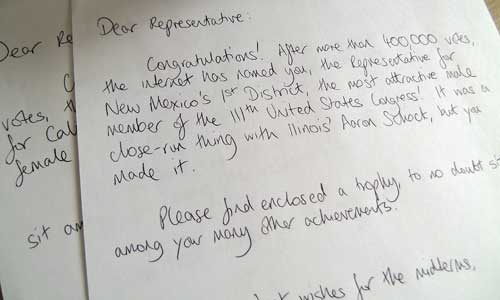 Dear Re
Dear Representative:
Congratulations! After more than 400,000 votes,
the internet has named you, the Representative for
New Mexico's 1st District, the most attractive male
member of the 111th United States Congress! It was a
close-run thing with Illinois' Aaron Schock, but you
made it.
Please find enclosed a trophy, to no doubt si
among your many other achievements.
wishes for the midterms,
C
votes, th
for Cali
female
sit am